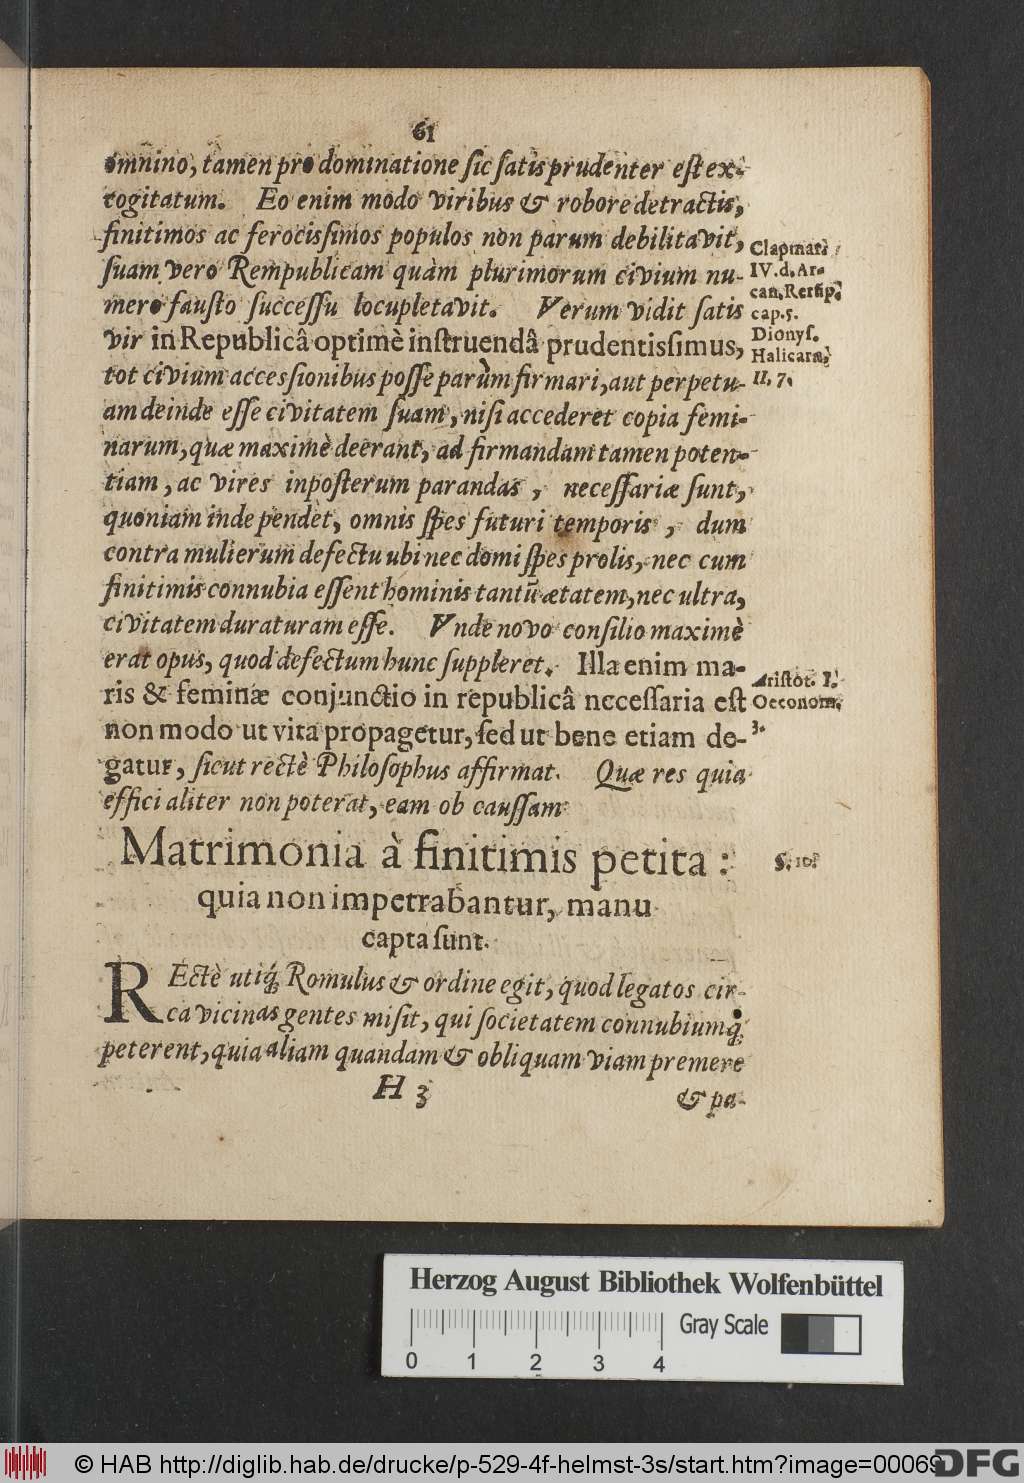 61
omnino, tamen pro dominatione sic satis prudenter est ex-
cogitatum. Eo enim modo viribus & robore detractis,
finitimos ac ferocissimos populos non parum debilitavit,
suam vero Rempublicam quàm plurimorum civium nu-
mero fausto successu locupletavit. Verum vidit satis
vir in Republicâ optimè instruendâ prudentissimus,
tot civium accessionibus posse parùm firmari, aut perpetu-
am deinde esse civitatem suam, nisi accederet copia femi-
narum, quæ maximè deerant, ad firmandam tamen poten-
tiam, ac vires inposterum parandas, necessariæ sunt,
quoniam inde pendet, omnis spes futuri temporis, dum
contra mulierum defectu ubi nec domi spes prolis, nec cum
finitimis connubia essent hominis tantū ætatem, nec ultra,
civitatem duraturam esse. Vnde novo consilio maximè
erat opus, quod defectum hunc suppleret. Illa enim ma-
ris & feminæ conjunctio in republicâ necessaria est
non modo ut vita propagetur, sed ut bene etiam de-
gatur, sicut rectè Philosophus affirmat. Quæ res quia
effici aliter non poterat, eam ob caussam
Clapmar.
IV. d. Ar-
can. Rerūp.
cap. 5.
Dionys.
Halicarn.
II, 7.
Aristot. I.
Oeconom.
3.
Matrimonia à finitimis petita:
quia non impetrabantur, manu
capta sunt.
§. 10.
REctè utiq́; Romulus & ordine egit, quod legatos cir-
ca vicinas gentes misit, qui societatem connubiumq́;
peterent, quia aliam quandam & obliquam viam premere
H 3
& pa-
Herzog August Bibliothek Wolfenbüttel
Gray Scale
0 1 2 3 4
© HAB http://diglib.hab.de/drucke/p-529-4f-helmst-3s/start.htm?image=00069
DFG